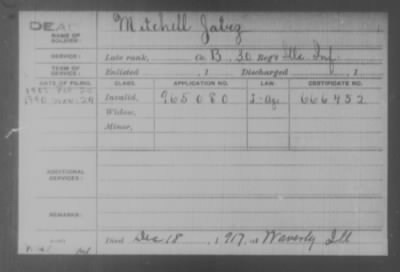 DEAD
Mitchell Jabez
NAME OF SOLDIER:
SERVICE: Late rank, Co. B, 30 Reg't Ills. Inf.
TERM OF SERVICE: Enlisted , 1 Discharged , 1
DATE OF FILING. CLASS. APPLICATION NO. LAW. CERTIFICATE NO.
Invalid, 965080 666752
Widow,
Minor,
ADDITIONAL SERVICES:
REMARKS:
Died Dec 18, 1917, at Waverly Ill